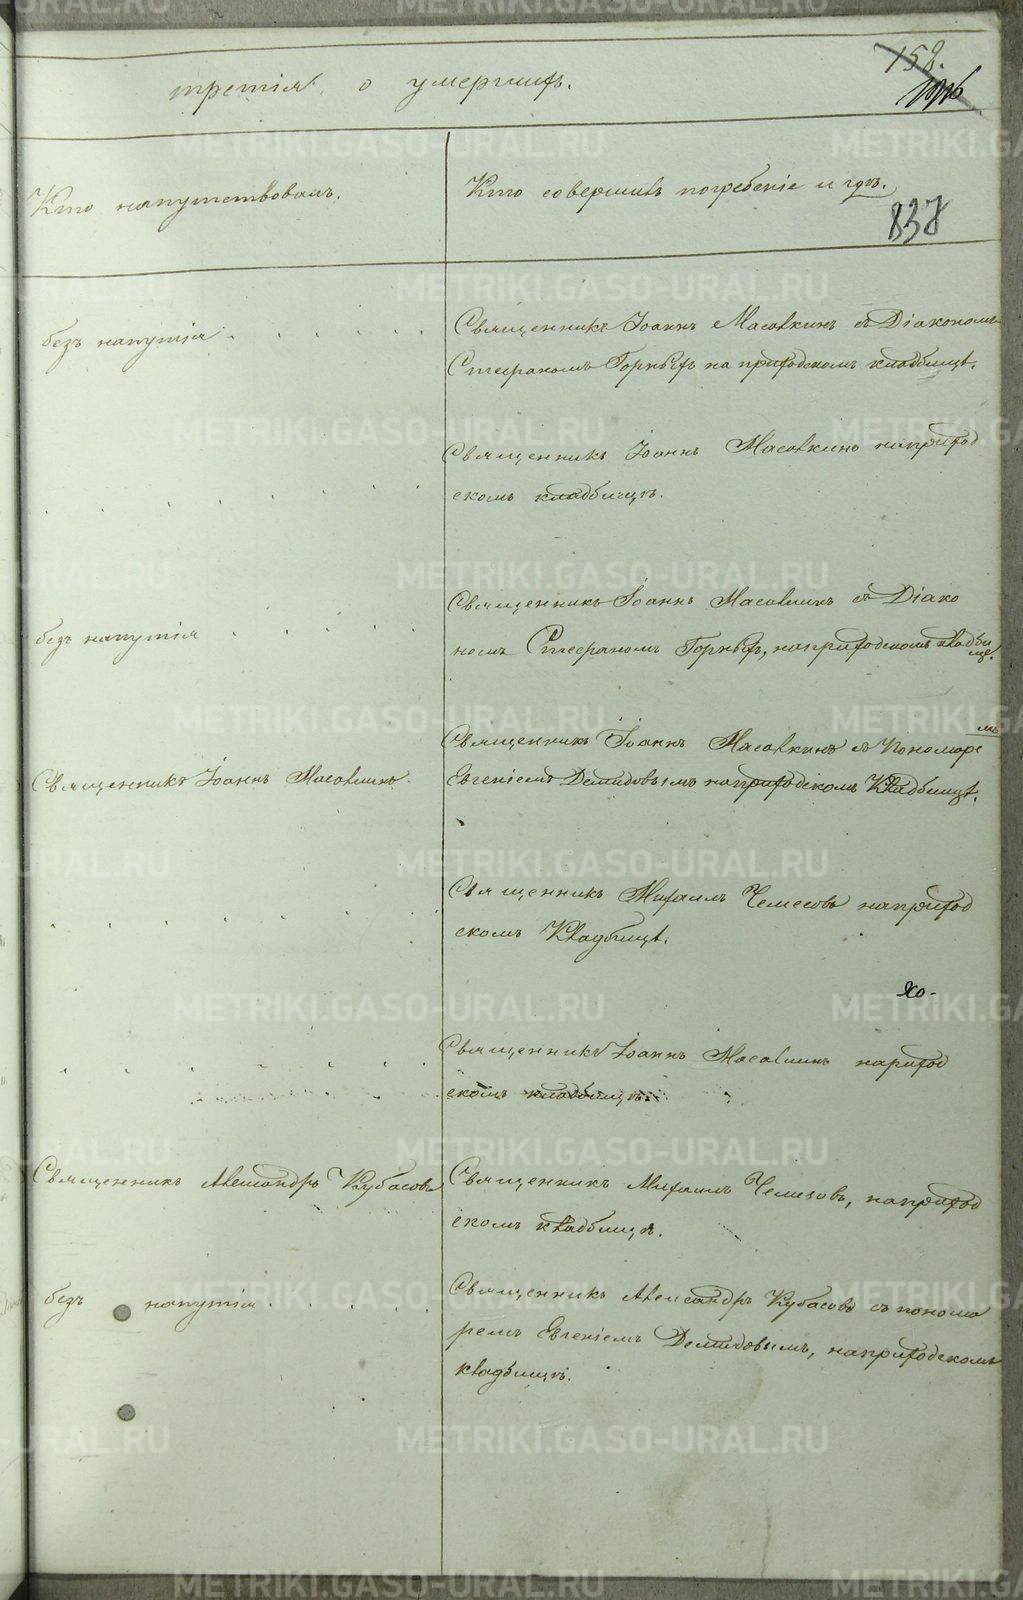 158.
третiя о умершихъ.
Кто напутствовалъ.
Кто совершилъ погребенiе и гдѣ.
837
безъ напутiя
Священникъ Iоаннъ Масалкинъ съ Дiакономъ
Стефаномъ Горныхъ на приходскомъ кладбищѣ.
Священникъ Iоаннъ Масалкинъ на приход
скомъ кладбищѣ.
безъ напутiя
Священникъ Iоаннъ Масалкинъ съ Дiако
номъ Стефаномъ Горныхъ, на приходскомъ кладби
щѣ.
Священникъ Iоаннъ Масалкинъ
Священникъ Iоаннъ Масалкинъ съ Пономаре
мъ
Евгенiемъ Демидовымъ на приходскомъ Кладбищѣ.
Священникъ Михаилъ Чемесовъ на приход
скомъ Кладбищѣ.
хо-
Священникъ Iоаннъ Масалкинъ на риход
скомъ кладбищѣ.
Священникъ Александръ Кубасовъ
Священникъ Михаилъ Чемезовъ, на приход
скомъ кладбищѣ.
безъ напутiя
Священникъ Александръ Кубасовъ съ понома
ремъ Евгенiемъ Демидовымъ, на приходскомъ
кладбищѣ.
METRIKI.GASO-URAL.RU